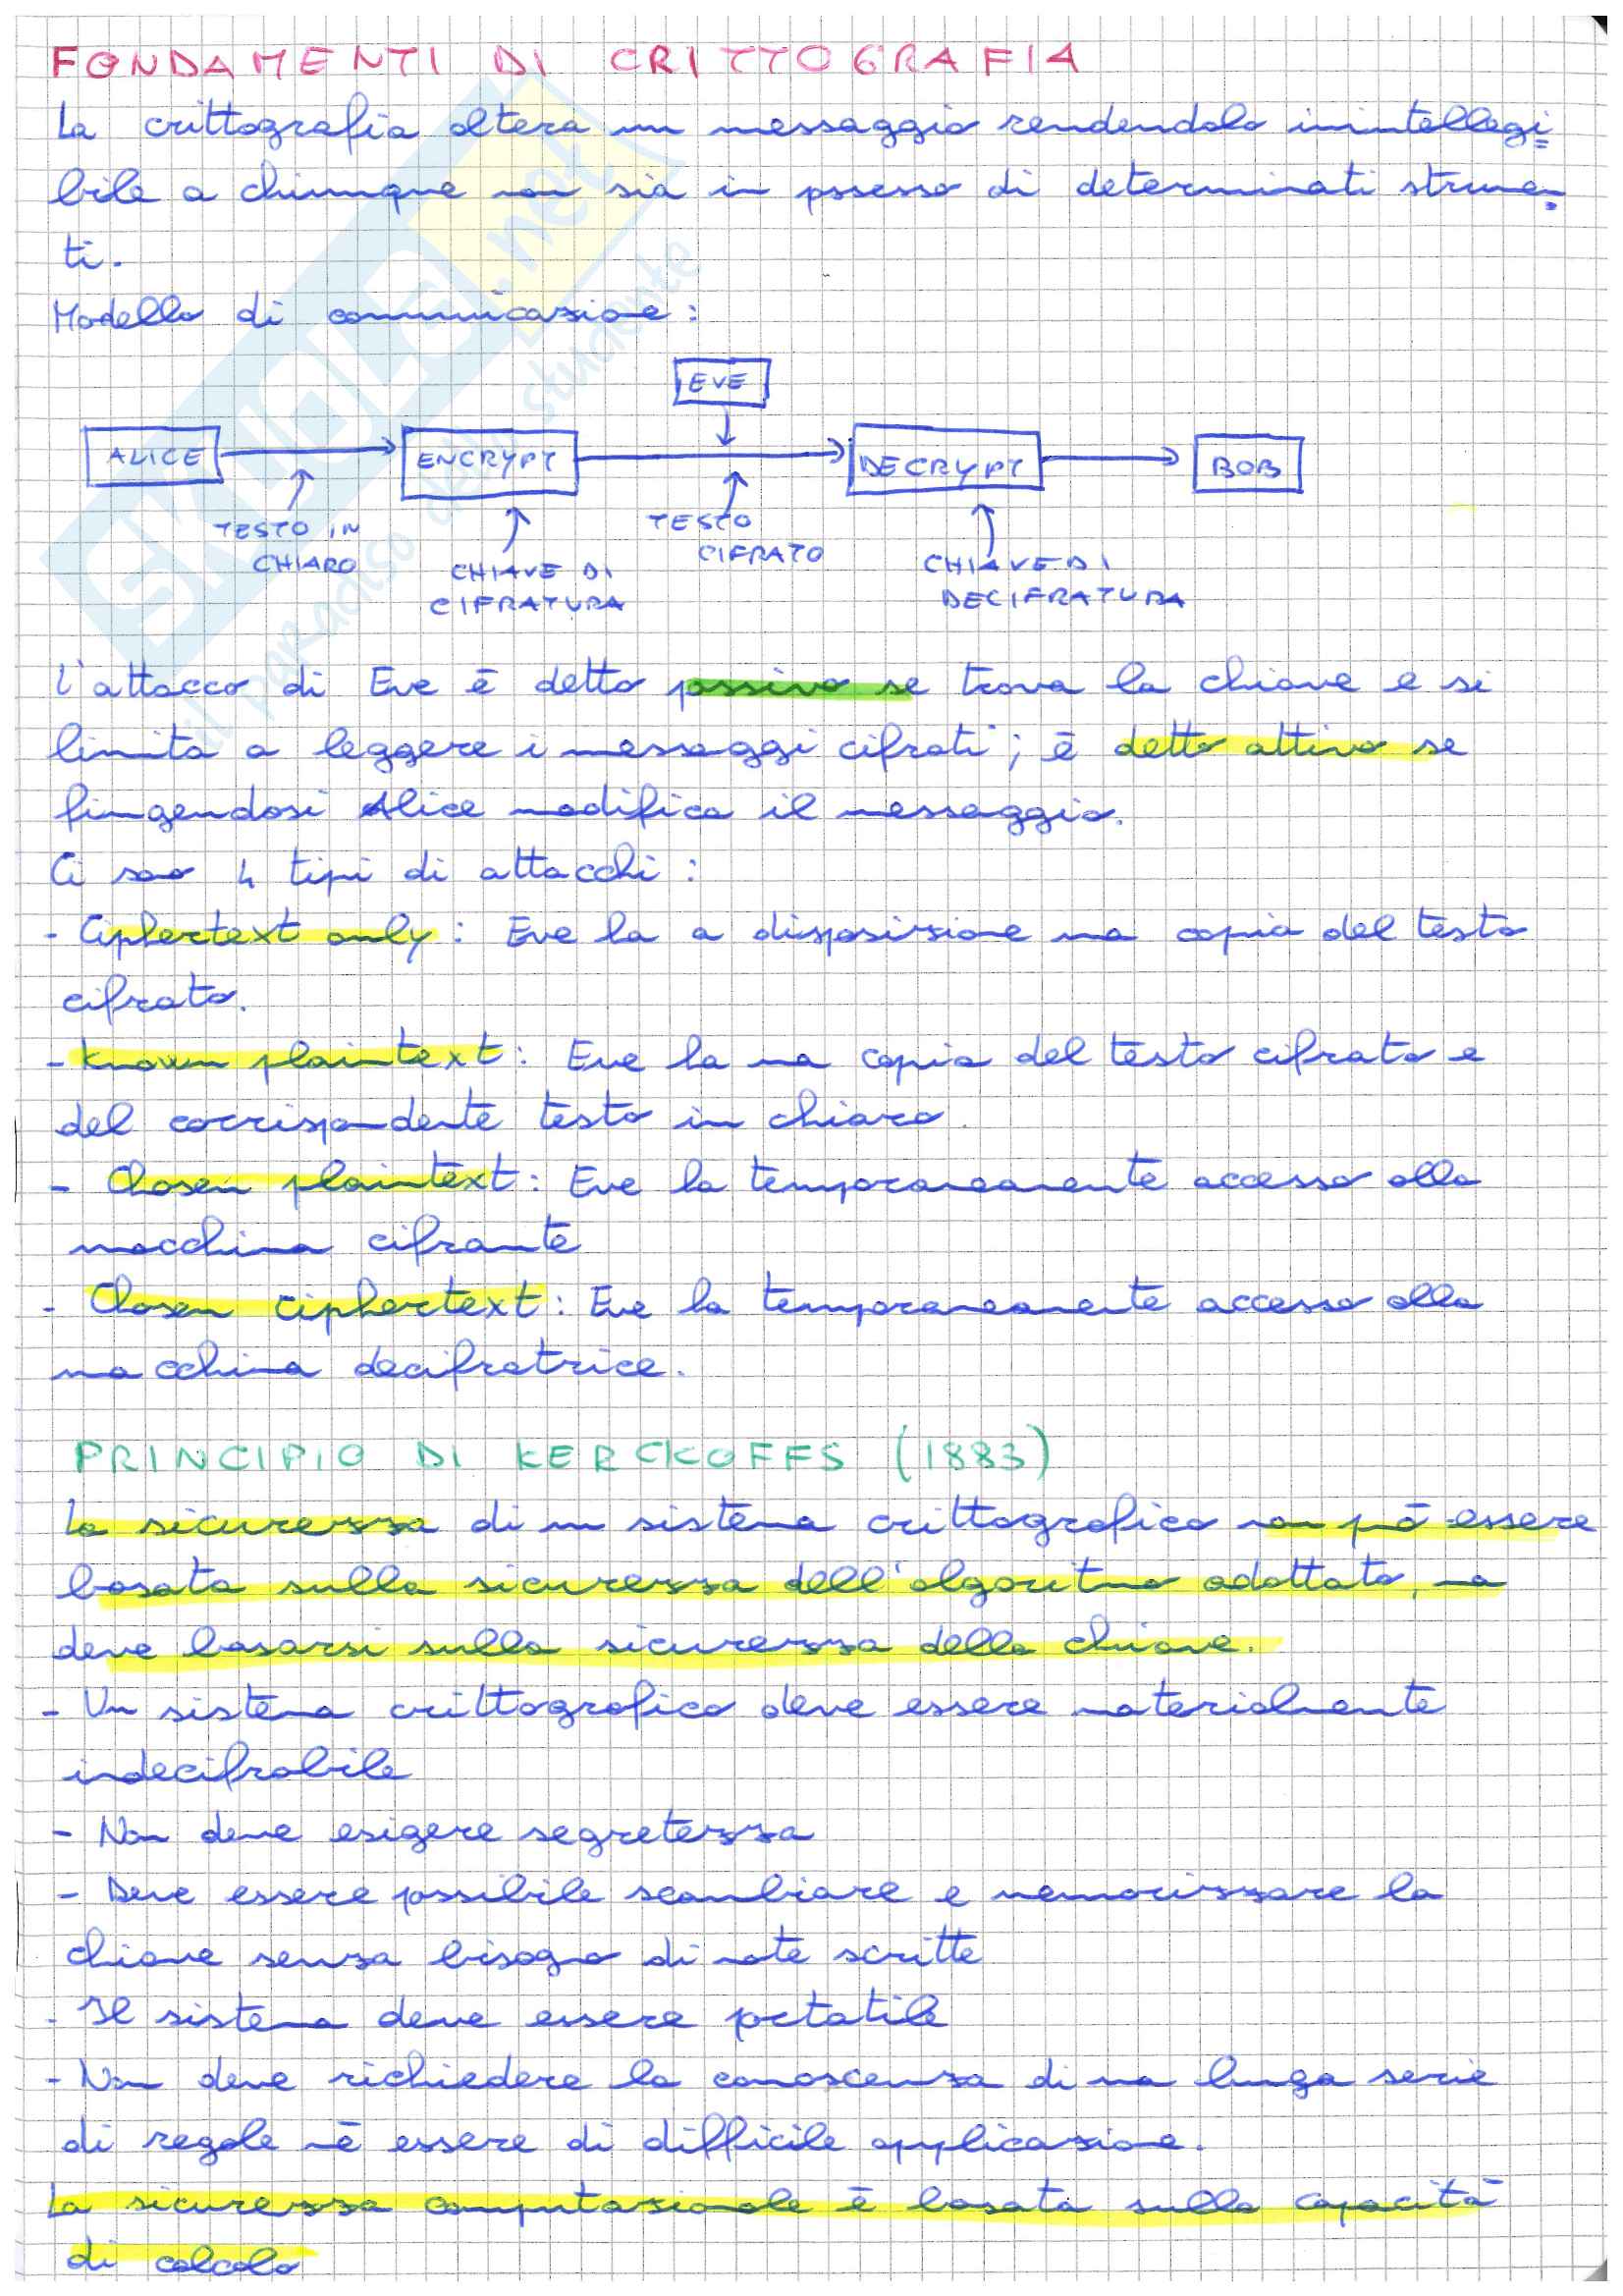 FONDAMENTI DI CRITTOGRAFIA
La crittografia altera un messaggio rendendolo inintellegi=
bile a chiunque non sia in possesso di determinati strumen-
ti.
Modello di comunicazione:
EVE
ALICE ENCRYPT DECRYPT BOB
TESTO IN TESTO
CHIARO CIFRATO
CHIAVE DI CHIAVE DI
CIFRATURA DECIFRATURA
L'attacco di Eve è detto passivo se trova la chiave e si
limita a leggere i messaggi cifrati; è detto attivo se
fingendosi Alice modifica il messaggio.
Ci sono 4 tipi di attacchi:
- Ciphertext only: Eve ha a disposizione una copia del testo
cifrato.
- Known plaintext: Eve ha una copia del testo cifrato e
del corrispondente testo in chiaro.
- Chosen plaintext: Eve ha temporaneamente accesso alla
macchina cifrante
- Chosen ciphertext: Eve ha temporaneamente accesso alla
macchina decifratrice.
PRINCIPIO DI KERCKOFFS (1883)
La sicurezza di un sistema crittografico non può essere
basata sulla sicurezza dell'algoritmo adottato, ma
deve basarsi sulla sicurezza della chiave.
- Un sistema crittografico deve essere materialmente
indecifrabile
- Non deve esigere segretezza
- Deve essere possibile scambiare e memorizzare la
chiave senza bisogno di note scritte
- Il sistema deve essere portatile
- Non deve richiedere la conoscenza di una lunga serie
di regole né essere di difficile applicazione.
La sicurezza computazionale è basata sulla capacità
di calcolo
SKUOLA.net
il paradiso dello studente